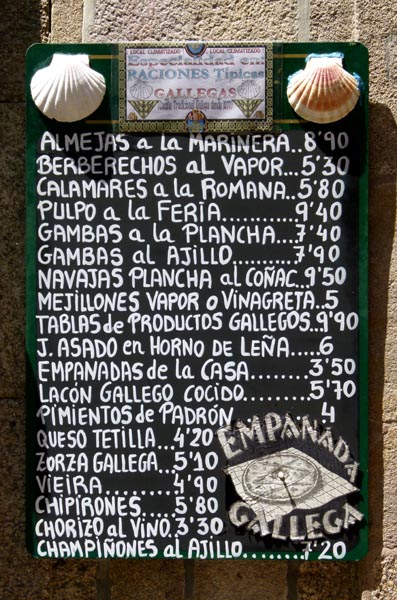 LOCAL CLIMATIZADO LOCAL CLIMATIZADO
Especialidad en:
RACIONES Típicas
GALLEGAS
ALMEJAS a la MARINERA..8'90
BERBERECHOS al VAPOR...5'30
CALAMARES a la ROMANA..5'80
PULPO a la FERIA...........9'40
GAMBAS a la PLANCHA...7'40
GAMBAS al AJILLO........7'90
NAVAJAS PLANCHA al COÑAC..9'50
MEJILLONES VAPOR o VINAGRETA..5
TABLAS de PRODUCTOS GALLEGOS..9'90
J. ASADO en HORNO DE LEÑA.....6
EMPANADAS de la CASA........3'50
LACÓN GALLEGO COCIDO........5'70
PIMIENTOS de PADRÓN 4
QUESO TETILLA..4'20
ZORZA GALLEGA...5'10
VIEIRA.........4'90
CHIPIRONES....5'80
CHORIZO al VINO.3'30
CHAMPIÑONES al AJILLO.......7'20
EMPANADA
GALLEGA